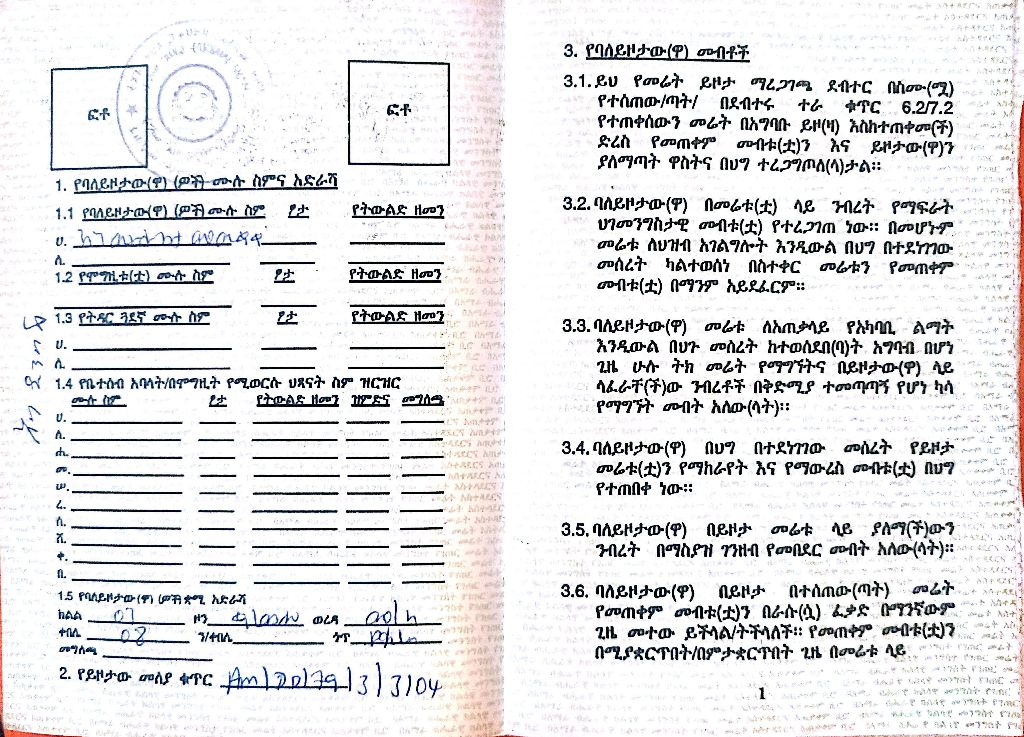 ፎቶ ፎቶ
1. የባለይዞታው(ዋ) (ዎች) ሙሉ ስምና አድራሻ
1.1 የባለይዞታው(ዋ) (ዎች) ሙሉ ስም ፆታ የትውልድ ዘመን
ሀ.
ለ.
1.2 የሞግዚቱ(ቷ) ሙሉ ስም ፆታ የትውልድ ዘመን
1.3 የትዳር ጓደኛ ሙሉ ስም ፆታ የትውልድ ዘመን
ሀ.
ለ.
1.4 የቤተሰብ አባላት/በሞግዚት የሚወርሱ ህጻናት ስም ዝርዝር
ሙሉ ስም ፆታ የትውልድ ዘመን ዝምድና መግለጫ
ሀ.
ለ.
ሐ.
መ.
ሠ.
ረ.
ሰ.
ሸ.
ቀ.
በ.
1.5 የባለይዞታው(ዋ) (ዎች) ቋሚ አድራሻ
ክልል 07 ዞን ወረዳ
ቀበሌ 08 ጎ/ቀበሌ ጎጥ
መግለጫ
2. የይዞታው መለያ ቁጥር /3/3/04
3. የባለይዞታው(ዋ) መብቶች
3.1. ይህ የመሬት ይዞታ ማረጋገጫ ደብተር በስሙ(ሟ)
የተሰጠው/ጣት/ በደብተሩ ተራ ቁጥር 6.2/7.2
የተጠቀሰውን መሬት በአግባቡ ይዞ(ዛ) እስከተጠቀመ(ች)
ድረስ የመጠቀም መብቱ(ቷ)ን እና ይዞታው(ዋ)ን
ያለማጣት ዋስትና በህግ ተረጋግጦለ(ላ)ታል።
3.2. ባለይዞታው(ዋ) በመሬቱ(ቷ) ላይ ንብረት የማፍራት
ህገመንግስታዊ መብቱ(ቷ) የተረጋገጠ ነው። በመሆኑም
መሬቱ ለህዝብ አገልግሎት እንዲውል በህግ በተደነገገው
መሰረት ካልተወሰነ በስተቀር መሬቱን የመጠቀም
መብቱ(ቷ) በማንም አይደፈርም።
3.3. ባለይዞታው(ዋ) መሬቱ ለአጠቃላይ የአካባቢ ልማት
እንዲውል በህጉ መሰረት ከተወሰደበ(ባ)ት አግባብ በሆነ
ጊዜ ሁሉ ትክ መሬት የማግኘትና በይዞታው(ዋ) ላይ
ላፈራቸ(ች)ው ንብረቶች በቅድሚያ ተመጣጣኝ የሆነ ካሳ
የማግኘት መብት አለው(ላት)።
3.4. ባለይዞታው(ዋ) በህግ በተደነገገው መሰረት የይዞታ
መሬቱ(ቷ)ን የማከራየት እና የማውረስ መብቱ(ቷ) በህግ
የተጠበቀ ነው።
3.5. ባለይዞታው(ዋ) በይዞታ መሬቱ ላይ ያለማ(ች)ውን
ንብረት በማስያዝ ገንዘብ የመበደር መብት አለው(ላት)።
3.6. ባለይዞታው(ዋ) በይዞታ በተሰጠው(ጣት) መሬት
የመጠቀም መብቱ(ቷ)ን በራሱ(ሷ) ፈቃድ በማንኛውም
ጊዜ መተው ይችላል/ትችላለች። የመጠቀም መብቱ(ቷ)ን
በሚያቋርጥበት/በምታቋርጥበት ጊዜ በመሬቱ ላይ
1